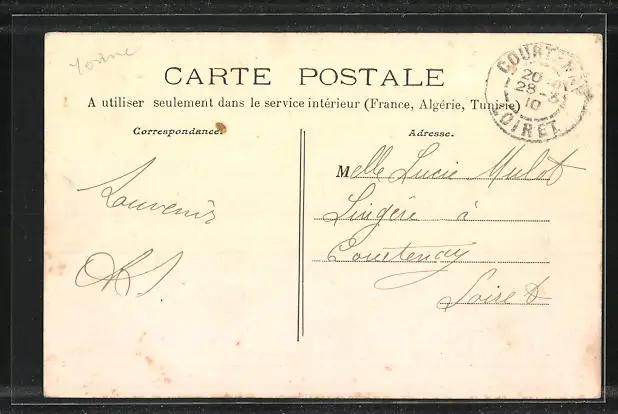 Yonne
CARTE POSTALE
A utiliser seulement dans le service intérieur (France, Algérie, Tunisie)
COURTENAY
20
28-3
10
LOIRET
Correspondance.
Adresse.
Souvenir
Melle Lucie Mulot
Lingère à
Courtenay
Loiret